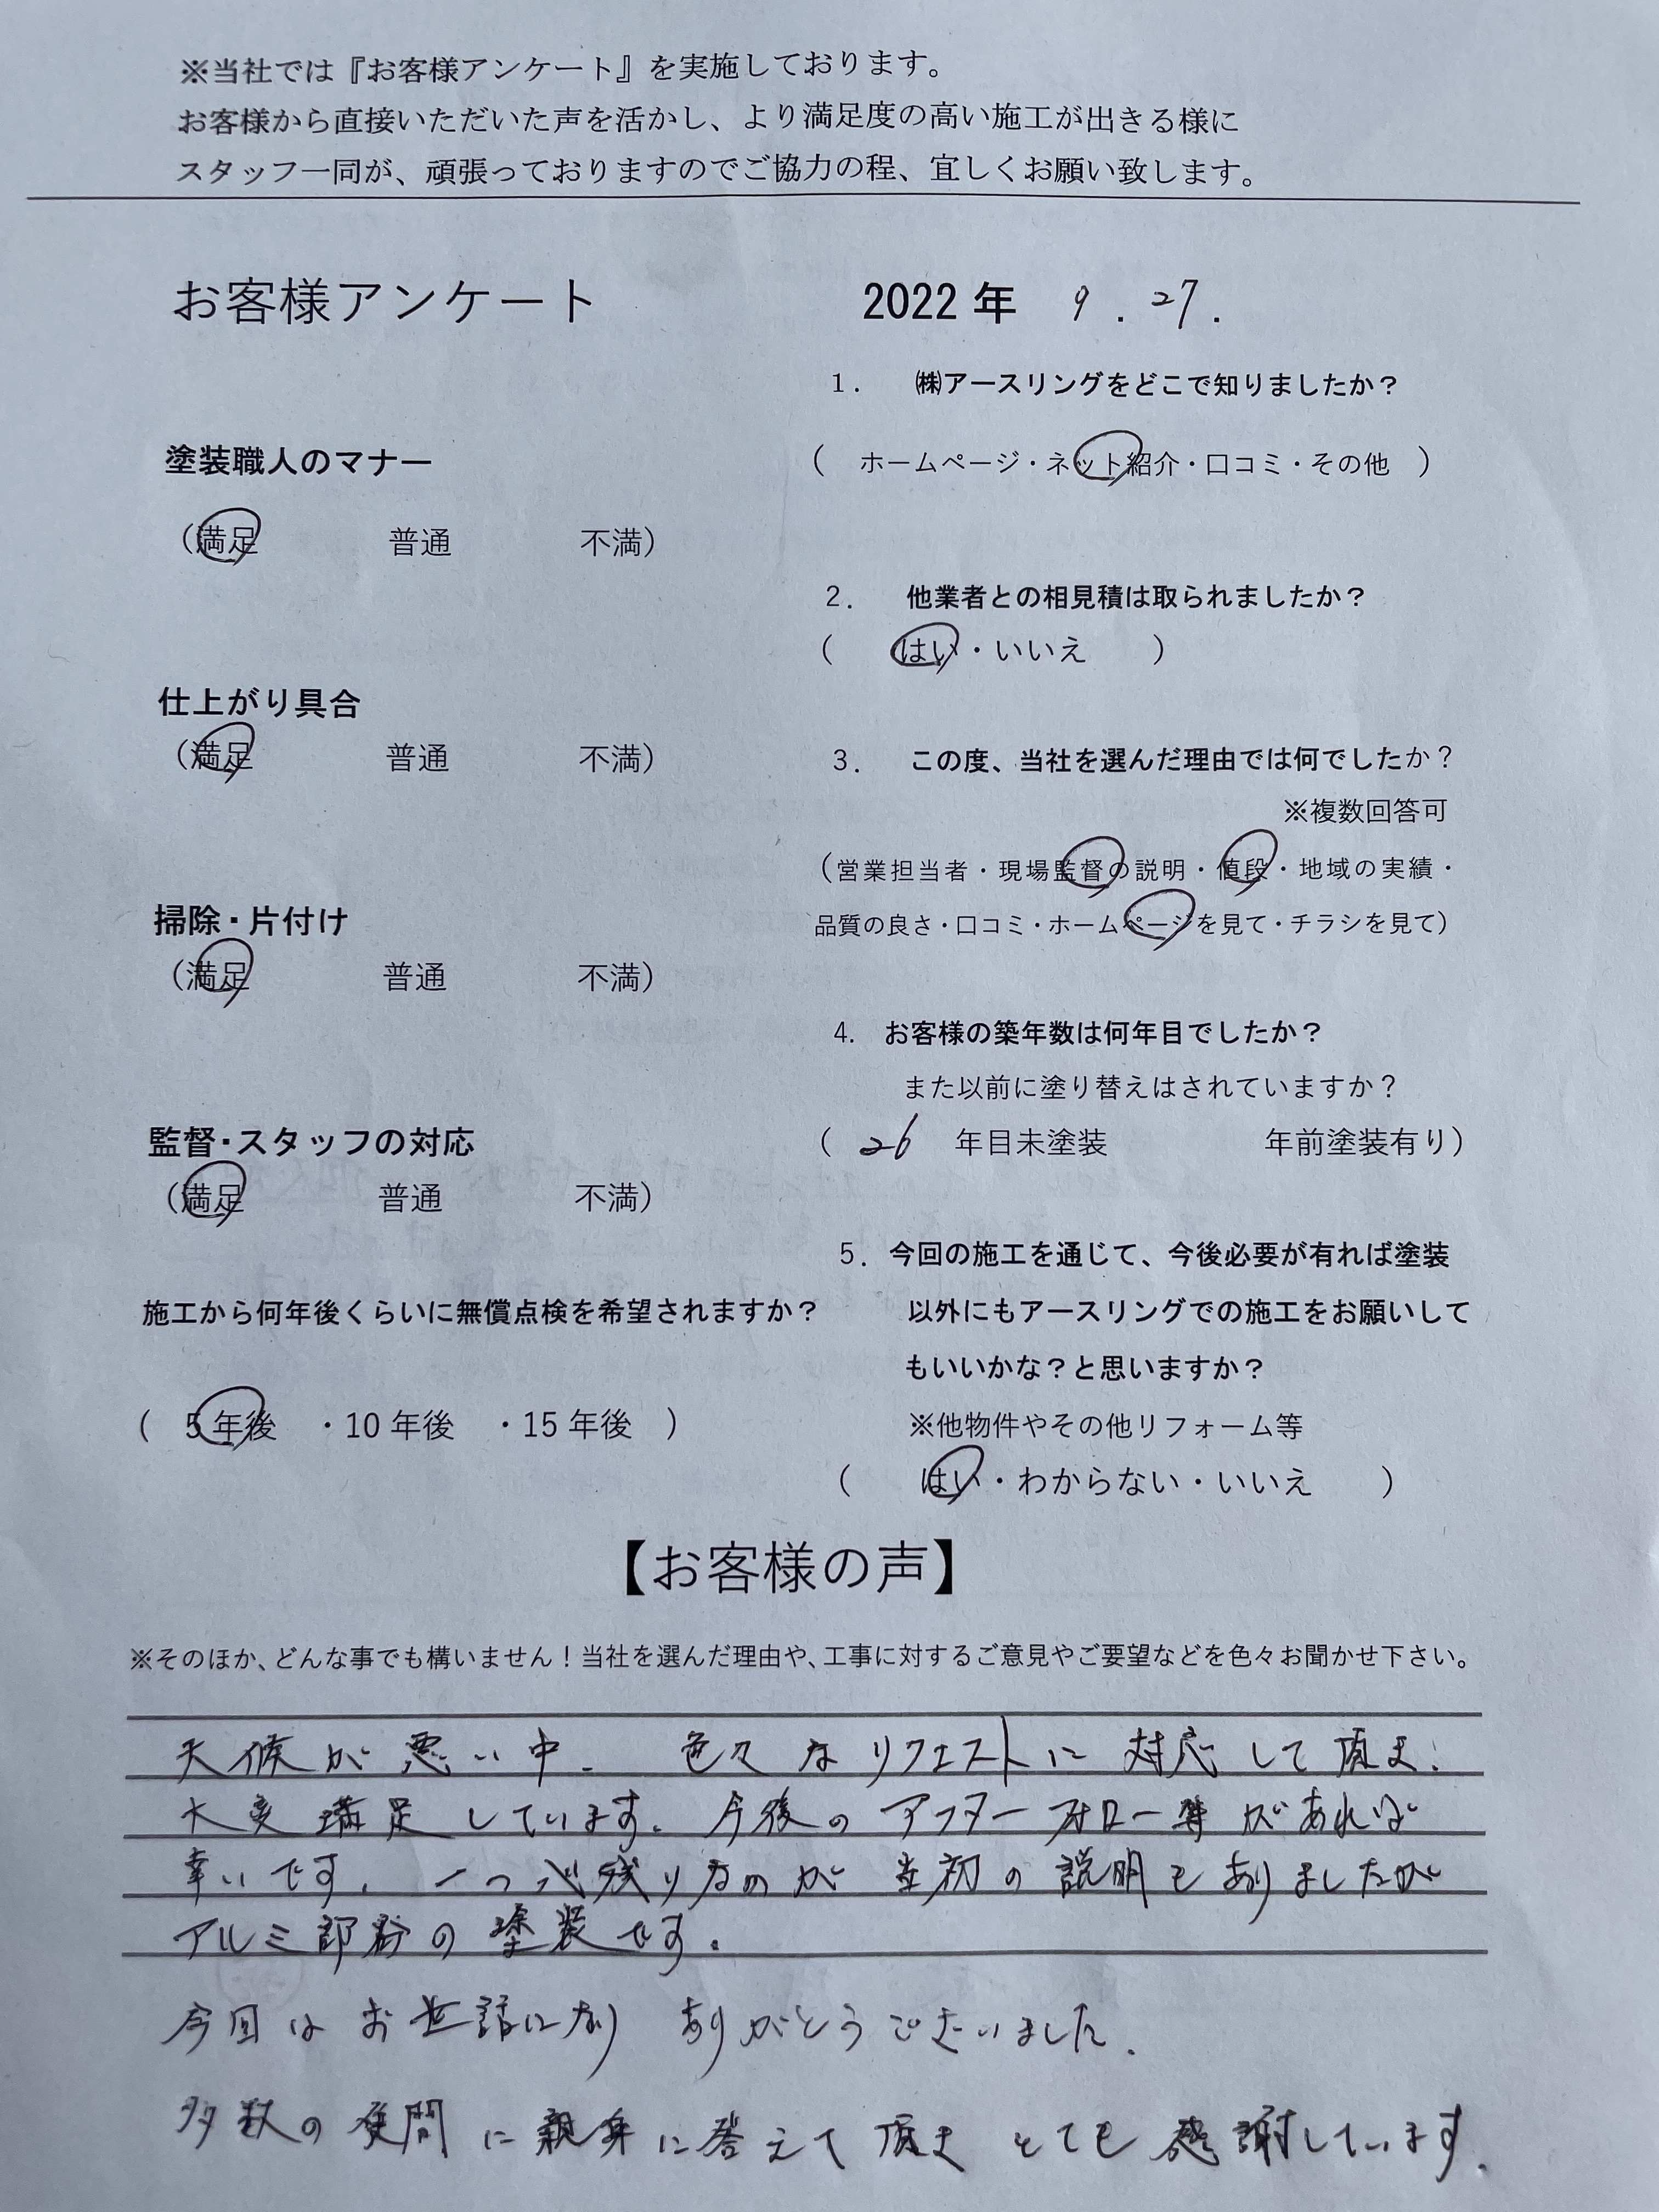 ※当社では『お客様アンケート』を実施しております。
お客様から直接いただいた声を活かし、より満足度の高い施工が出きる様に
スタッフ一同が、頑張っておりますのでご協力の程、宜しくお願い致します。
お客様アンケート
2022年 9.27.
塗装職人のマナー
（満足 普通 不満）
仕上がり具合
（満足 普通 不満）
掃除・片付け
（満足 普通 不満）
監督・スタッフの対応
（満足 普通 不満）
施工から何年後くらいに無償点検を希望されますか？
（ 5年後 ・10年後 ・15年後 ）
1. ㈱アースリングをどこで知りましたか？
（ ホームページ・ネット紹介・口コミ・その他 ）
2. 他業者との相見積は取られましたか？
（ はい・いいえ ）
3. この度、当社を選んだ理由では何でしたか？
※複数回答可
（営業担当者・現場監督の説明・値段・地域の実績・
品質の良さ・口コミ・ホームページを見て・チラシを見て）
4. お客様の築年数は何年目でしたか？
また以前に塗り替えはされていますか？
（ 26 年目未塗装 年前塗装有り）
5. 今回の施工を通じて、今後必要が有れば塗装
以外にもアースリングでの施工をお願いして
もいいかな？と思いますか？
※他物件やその他リフォーム等
（ はい・わからない・いいえ ）
【お客様の声】
※そのほか、どんな事でも構いません！当社を選んだ理由や、工事に対するご意見やご要望などを色々お聞かせ下さい。
天候が悪い中、色々なリクエストに対応して頂ま
大変満足しています。今後のアフターフォロー等があれば
幸いです。一つ心残りなのが当初の説明もありましたが
アルミ部分の塗装です。
今回はお世話になりありがとうございました。
多数の質問に親身に答えて頂きとても感謝しています。